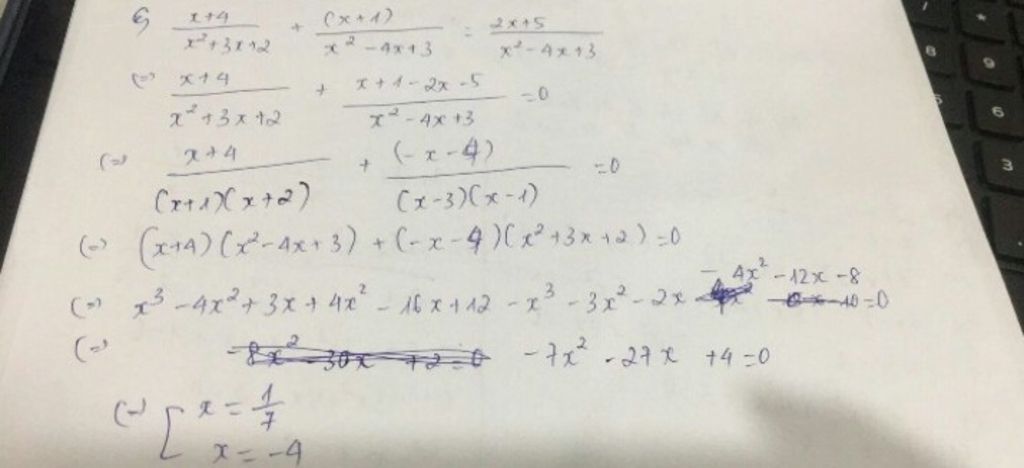 c) \frac{x+4}{x²+3x+2} + \frac{(x+1)}{x²-4x+3} = \frac{2x+5}{x²-4x+3}
(=) \frac{x+4}{x²+3x+2} + \frac{x+1-2x-5}{x²-4x+3} =0
(=) \frac{x+4}{(x+1)(x+2)} + \frac{(-x-4)}{(x-3)(x-1)} =0
(=) (x+4)(x²-4x+3) + (-x-4)(x²+3x+2)=0
(=) x³-4x²+3x+4x²-16x+12-x³-3x²-2x -4x²-12x-8 =0
(=) -7x²-27x+4=0
(=) [ x = \frac{1}{7}
x = -4